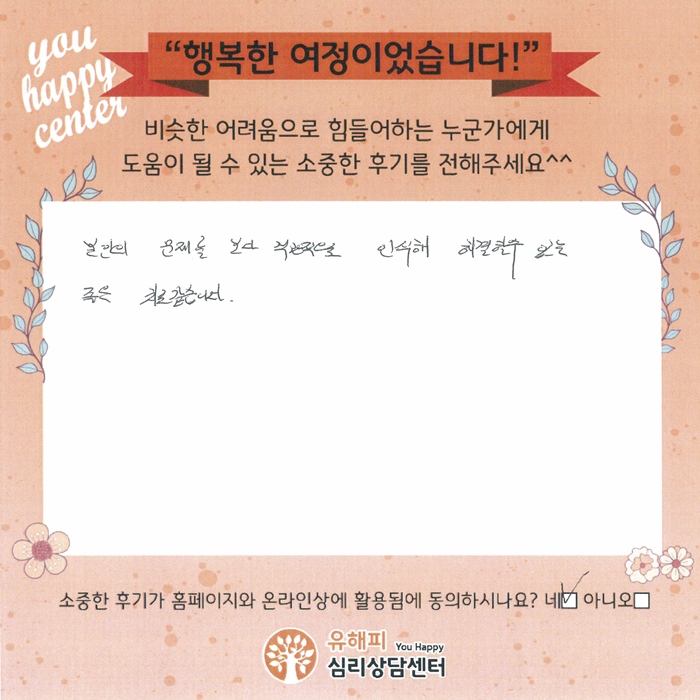 you
happy
center
“행복한 여정이었습니다!”
비슷한 어려움으로 힘들어하는 누군가에게
도움이 될 수 있는 소중한 후기를 전해주세요^^
문제를 보다 인식해 해결할수 있는
좋은
소중한 후기가 홈페이지와 온라인상에 활용됨에 동의하시나요? 네 아니오
유해피 You Happy
심리상담센터